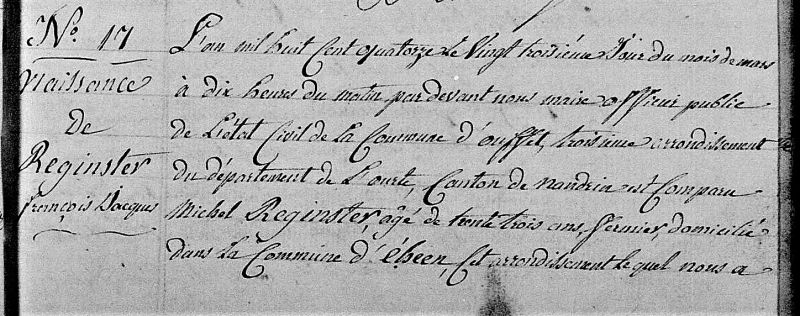 No. 17
Naissance
de
Reginster
françois Jacques
L'an mil huit Cent quatorze le Vingt troisiéme Jour du mois de mars
à dix heures du matin, par devant nous maire officier public
de L'état Civil de La Commune d'ouffet, troisieme arrondissement
du département de L'ourte, Canton de nandrin est Comparu
Michel Reginster, agé de trente trois ans, fermier, domicilié
dans La Commune d'ébeen, Cet arrondissement lequel nous a